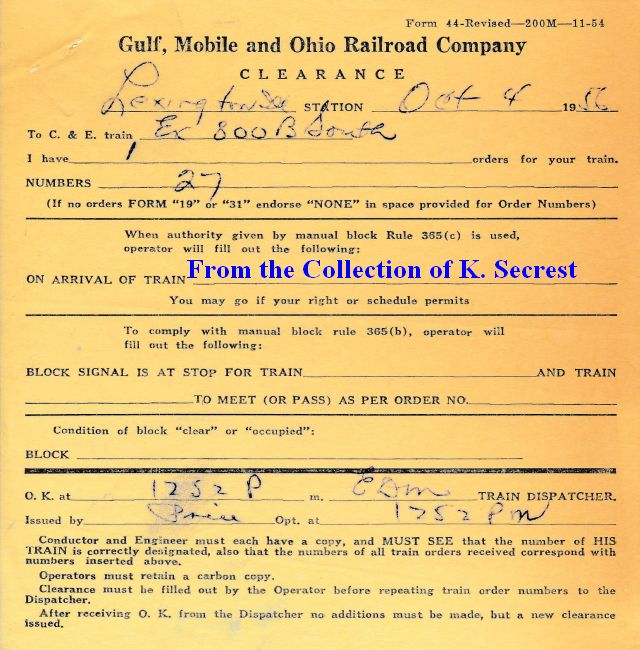 Form 44-Revised—200M—11-54
Gulf, Mobile and Ohio Railroad Company
CLEARANCE
Lexington Ill STATION Oct 4 1956
To C. & E. train Ex 800B South
I have 1 orders for your train.
NUMBERS 27
(If no orders FORM "19" or "31" endorse "NONE" in space provided for Order Numbers)
When authority given by manual block Rule 365(c) is used,
operator will fill out the following:
ON ARRIVAL OF TRAIN From the Collection of K. Secrest
You may go if your right or schedule permits
To comply with manual block rule 365(b), operator will
fill out the following:
BLOCK SIGNAL IS AT STOP FOR TRAIN AND TRAIN
TO MEET (OR PASS) AS PER ORDER NO.
Condition of block "clear" or "occupied":
BLOCK
O. K. at 1252 P m. EDM TRAIN DISPATCHER.
Issued by Price Opt. at 1252 PM
Conductor and Engineer must each have a copy, and MUST SEE that the number of HIS
TRAIN is correctly designated, also that the numbers of all train orders received correspond with
numbers inserted above.
Operators must retain a carbon copy.
Clearance must be filled out by the Operator before repeating train order numbers to the
Dispatcher.
After receiving O. K. from the Dispatcher no additions must be made, but a new clearance
issued.